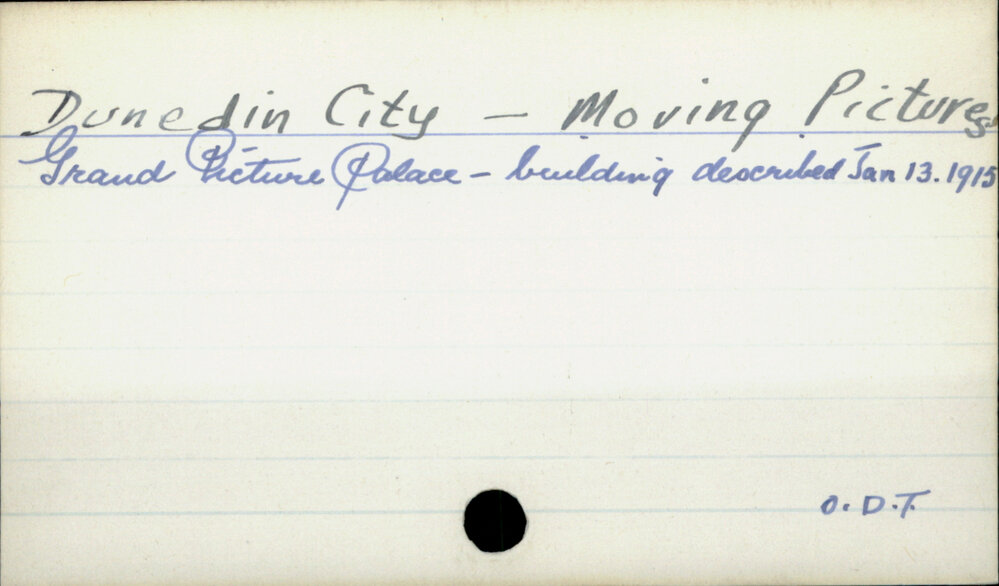 Dunedin City - Moving Pictures
Grand Picture Palace - building described Jan 13. 1915
O.D.T.